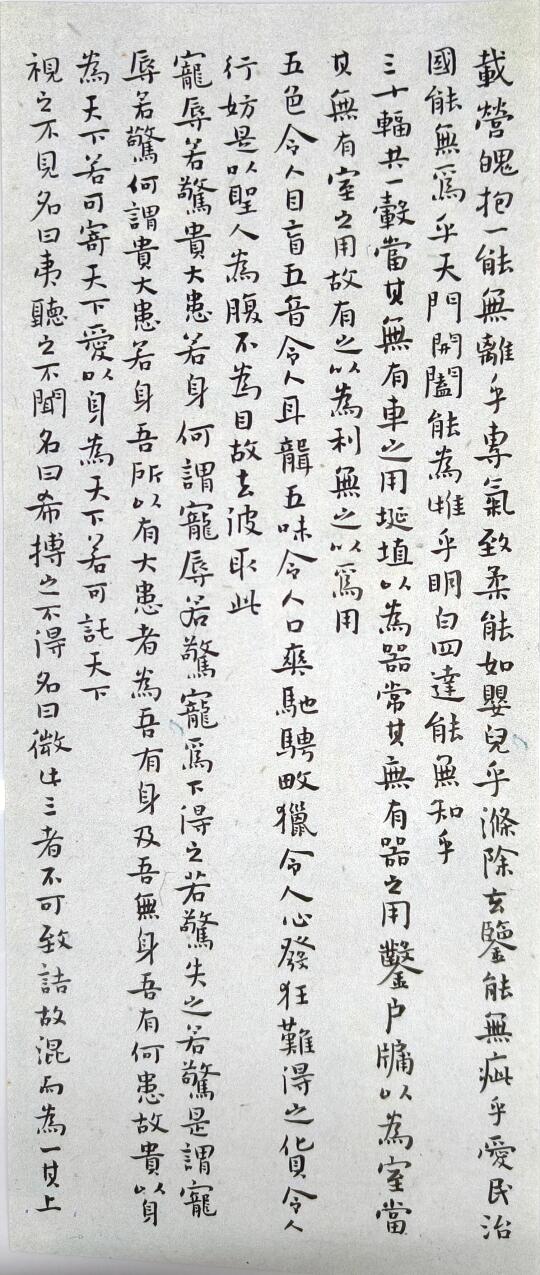 載營魄抱一能無離乎專氣致柔能如嬰兒乎滌除玄鑒能無疵乎愛民治
國能無為乎天門開闔能為雌乎明白四達能無知乎
三十輻共一轂當其無有車之用埏埴以為器當其無有器之用鑿戶牖以為室當
其無有室之用故有之以為利無之以為用
五色令人目盲五音令人耳聾五味令人口爽馳騁畋獵令人心發狂難得之貨令人
行妨是以聖人為腹不為目故去彼取此
寵辱若驚貴大患若身何謂寵辱若驚寵為下得之若驚失之若驚是謂寵
辱若驚何謂貴大患若身吾所以有大患者為吾有身及吾無身吾有何患故貴以身
為天下若可寄天下愛以身為天下若可託天下
視之不見名曰夷聽之不聞名曰希搏之不得名曰微此三者不可致詰故混而為一其上